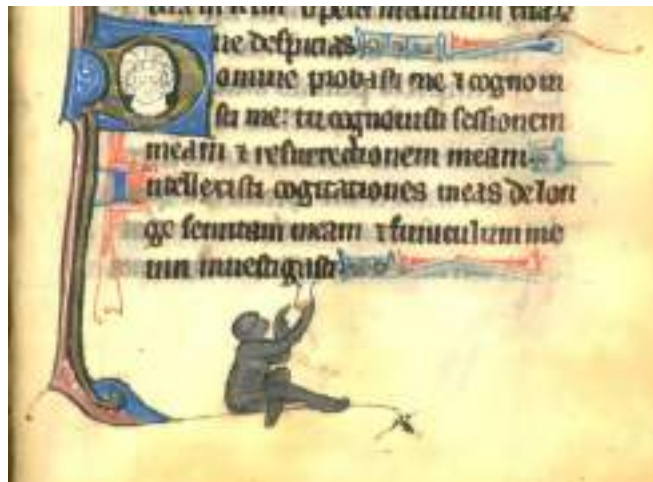 opera manuum tuar
ne despicias
Domine probasti me ⁊ cognoui
sti me: tu cognouisti sessionem
meam ⁊ resurrectionem meam
Intellexisti cogitationes meas de lon
ge semitam meam ⁊ funiculum me
um inuestigasti